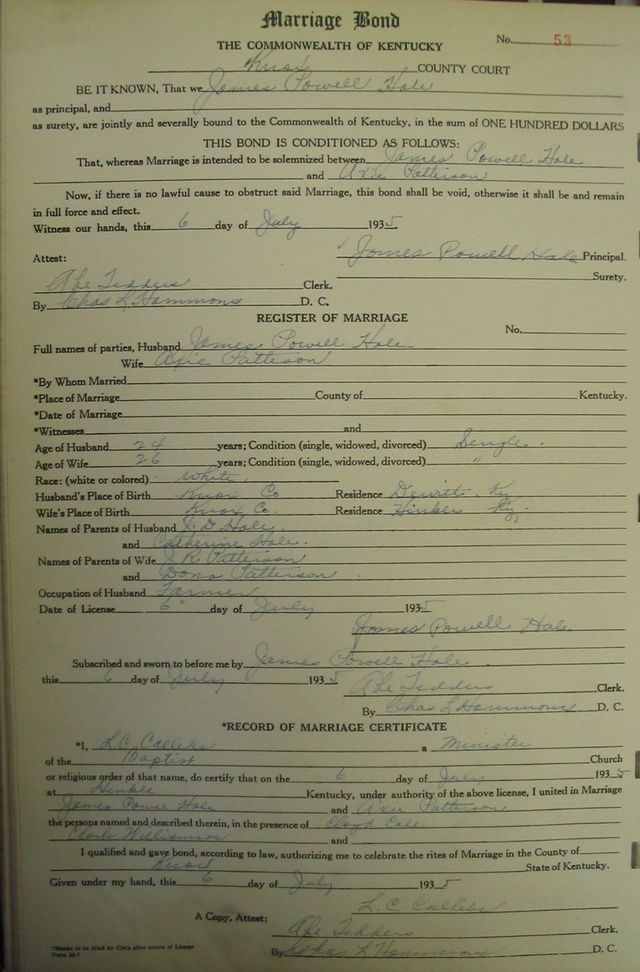 Marriage Bond
No. 53
THE COMMONWEALTH OF KENTUCKY
Knox COUNTY COURT
BE IT KNOWN, That we James Powell Hale
as principal, and
as surety, are jointly and severally bound to the Commonwealth of Kentucky, in the sum of ONE HUNDRED DOLLARS
THIS BOND IS CONDITIONED AS FOLLOWS:
That, whereas Marriage is intended to be solemnized between James Powell Hale
and Axie Patterson
Now, if there is no lawful cause to obstruct said Marriage, this bond shall be void, otherwise it shall be and remain
in full force and effect.
Witness our hands, this 6 day of July 1935.
James Powell Hale Principal.
Attest:
Surety.
Abe Tedders Clerk.
By Chas L Hammons D. C.
REGISTER OF MARRIAGE
No.
Full names of parties, Husband James Powell Hale
Wife Axie Patterson
*By Whom Married
*Place of Marriage County of Kentucky.
*Date of Marriage
*Witnesses and
Age of Husband 24 years; Condition (single, widowed, divorced) Single.
Age of Wife 26 years; Condition (single, widowed, divorced) "
Race: (white or colored) White.
Husband's Place of Birth Knox Co Residence Dewitt Ky
Wife's Place of Birth Knox Co. Residence Hinkle Ky,
Names of Parents of Husband J. D. Hale.
and Catherine Hale.
Names of Parents of Wife J. R. Patterson
and Dona Patterson.
Occupation of Husband Farmer
Date of License 6" day of July 1935
James Powell Hale
Subscribed and sworn to before me by James Powell Hale
this 6 day of July 1935
Abe Tedders Clerk.
By Chas L Hammons D. C.
*RECORD OF MARRIAGE CERTIFICATE
*I, L. C. Callebs a Minister
of the Baptist Church
or religious order of that name, do certify that on the 6 day of July 1935
at Hinkle Kentucky, under authority of the above license, I united in Marriage
James Powell Hale and Axie Patterson
the persons named and described therein, in the presence of Cloyd Cole
Clark Williamson and
I qualified and gave bond, according to law, authorizing me to celebrate the rites of Marriage in the County of
Knox State of Kentucky.
Given under my hand, this 6 day of July 1935
L. C. Callebs
A Copy. Attest:
Abe Tedders Clerk.
By Chas L Hammons D. C.
*Blanks to be filled by Clerk after return of License